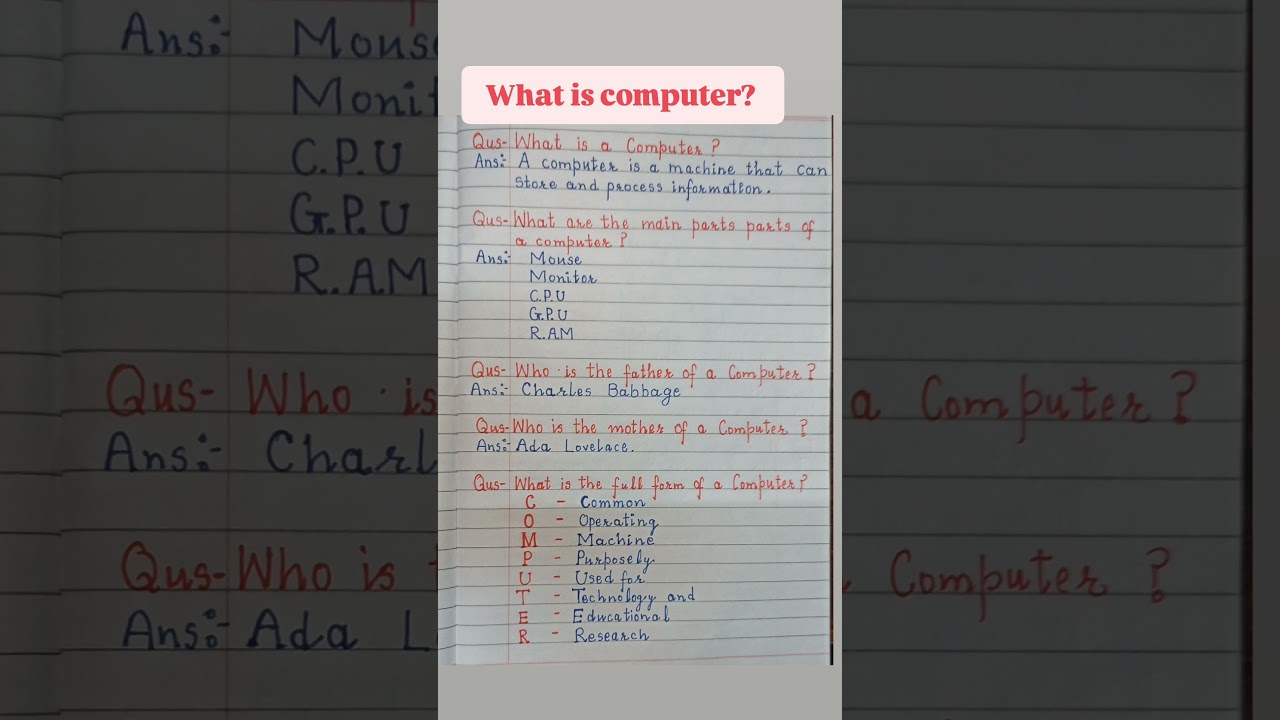 What is computer?
Qus- What is a Computer?
Ans:- A computer is a machine that can
Store and process information.
Qus- What are the main parts parts of
a computer?
Ans:- Mouse
Monitor
C.P.U
G.P.U
R.A.M
Qus- Who is the father of a Computer?
Ans:- Charles Babbage
Qus- Who is the mother of a Computer?
Ans:- Ada Lovelace.
Qus- What is the full form of a Computer?
C - Common
O - Operating
M - Machine
P - Purposely
U - Used for
T - Technology and
E - Educational
R - Research
Ans:- Mouse
Monit
C.P.U
G.P.U
R.A.M
Qus- Who is
a Computer?
Ans:- Charl
Qus- Who is
Computer?
Ans:- Ada L